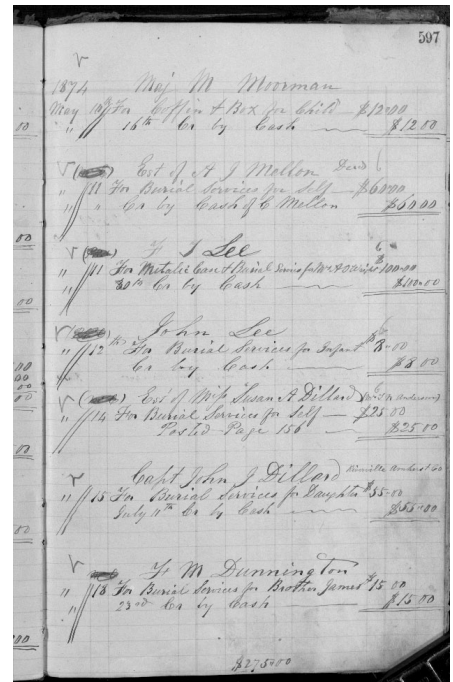 597
1874 Maj M Moorman
May 10 For Coffin & Box for Child — $12.00
" 16th Cr by Cash — $12.00
Est of A J Mellon Dead
" 11 For Burial Services for Self — $60.00
" " Cr by Cash of C Mellon $60.00
Lee
" 11 For Metalic Case & Burial $100.00
30th Cr by Cash — $100.00
John Lee
" 12th For Burial Services for Infant $8.00
Cr by Cash — $8.00
Est of Miss Susan A Dillard
" 14 For Burial Services for Self — $25.00
Posted Page 156 — $25.00
Capt John J Dillard Amherst Co
" 15 For Burial Services for Daughter $55.00
July 11th Cr by Cash — $55.00
M Dunnington
" 18 For Burial Services for Brother James $15.00
" 23rd Cr by Cash $15.00
$275.00